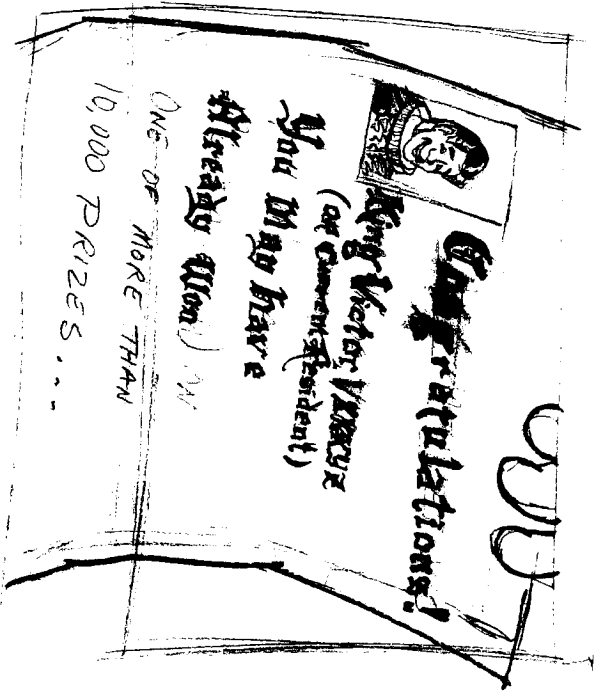 Congratulations!
King Victor
(or Current Resident)
You May Have
Already Won
ONE OF MORE THAN
10,000 PRIZES...